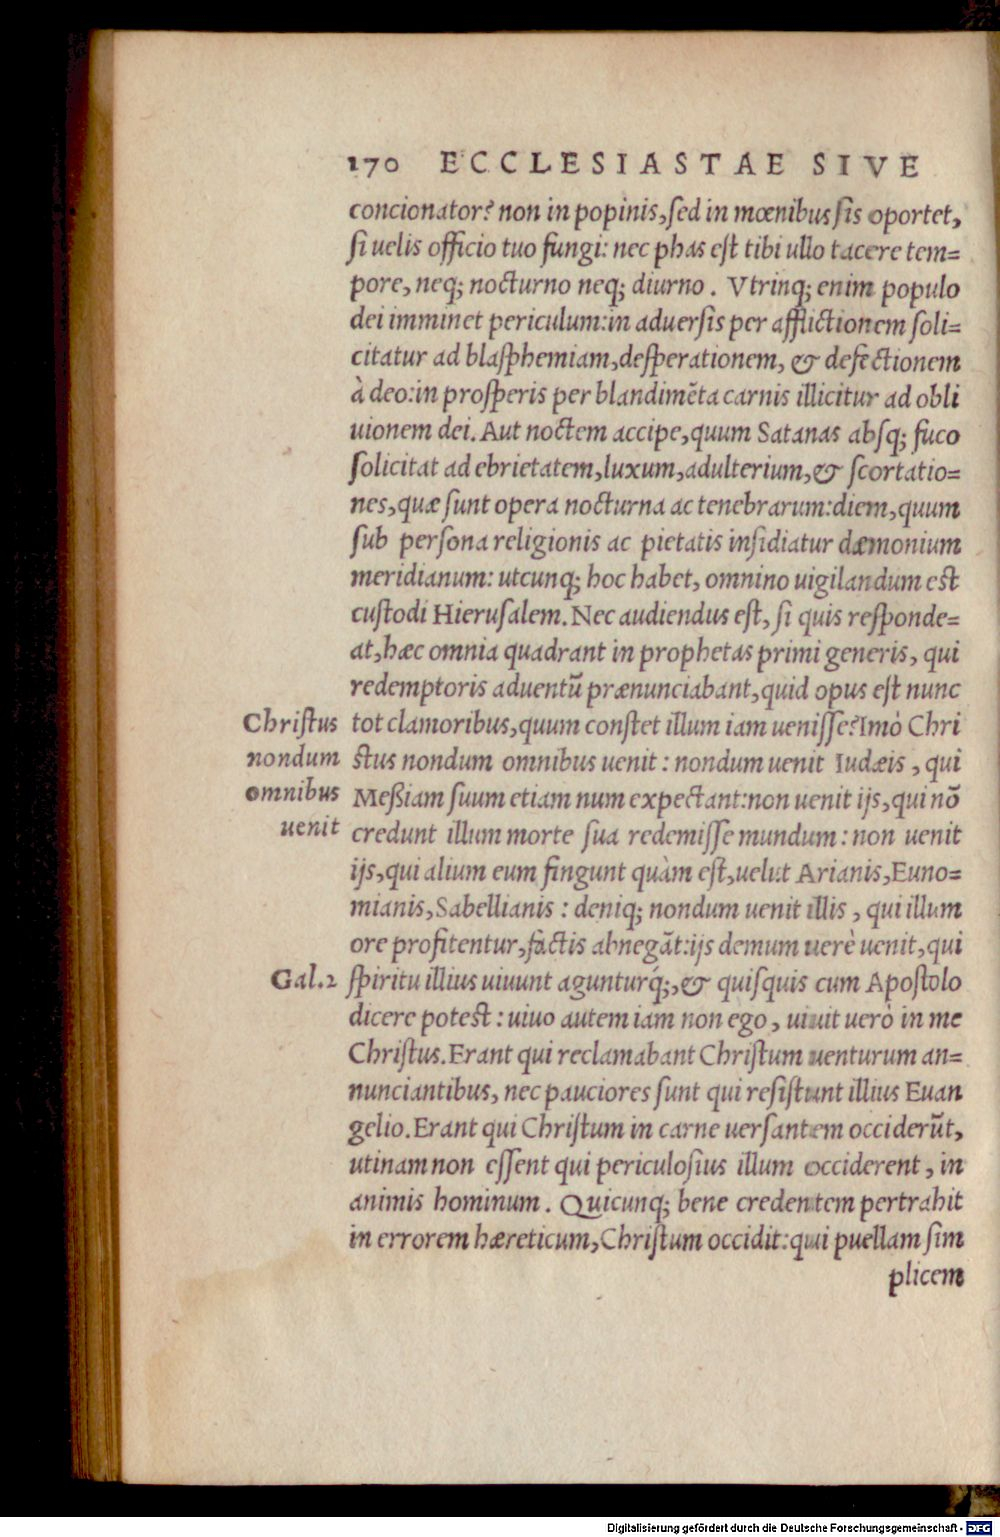 170 ECCLESIASTAE SIVE
concionator? non in popinis, ſed in mœnibus ſis oportet,
ſi uelis officio tuo fungi: nec phas eſt tibi ullo tacere tem=
pore, neq; nocturno neq; diurno. Vtrinq; enim populo
dei imminet periculum: in aduerſis per afflictionem ſoli=
citatur ad blaſphemiam, deſperationem, & defectionem
à deo: in proſperis per blandimẽta carnis illicitur ad obli
uionem dei. Aut noctem accipe, quum Satanas abſq; fuco
ſolicitat ad ebrietatem, luxum, adulterium, & ſcortatio=
nes, quæ ſunt opera nocturna ac tenebrarum: diem, quum
ſub perſona religionis ac pietatis inſidiatur dæmonium
meridianum: utcunq; hoc habet, omnino uigilandum eſt
cuſtodi Hieruſalem. Nec audiendus eſt, ſi quis reſponde=
at, hæc omnia quadrant in prophetas primi generis, qui
redemptoris aduentũ prænunciabant, quid opus eſt nunc
Chriſtus tot clamoribus, quum conſtet illum iam ueniſſe? Imò Chri
nondum ſtus nondum omnibus uenit: nondum uenit Iudæis, qui
omnibus Meßiam ſuum etiam num expectant: non uenit ijs, qui nõ
uenit credunt illum morte ſua redemiſſe mundum: non uenit
ijs, qui alium eum fingunt quàm eſt, uelut Arianis, Euno=
mianis, Sabellianis: deniq; nondum uenit illis, qui illum
ore profitentur, factis abnegãt: ijs demum uerè uenit, qui
Gal.2 ſpiritu illius uiuunt agunturq́;, & quiſquis cum Apoſtolo
dicere poteſt: uiuo autem iam non ego, uiuit uerò in me
Chriſtus. Erant qui reclamabant Chriſtum uenturum an=
nunciantibus, nec pauciores ſunt qui reſiſtunt illius Euan
gelio. Erant qui Chriſtum in carne uerſantem occiderũt,
utinam non eſſent qui periculoſius illum occiderent, in
animis hominum. Quicunq; bene credentem pertrahit
in errorem hæreticum, Chriſtum occidit: qui puellam ſim
plicem
Digitalisierung gefördert durch die Deutsche Forschungsgemeinschaft - DFG